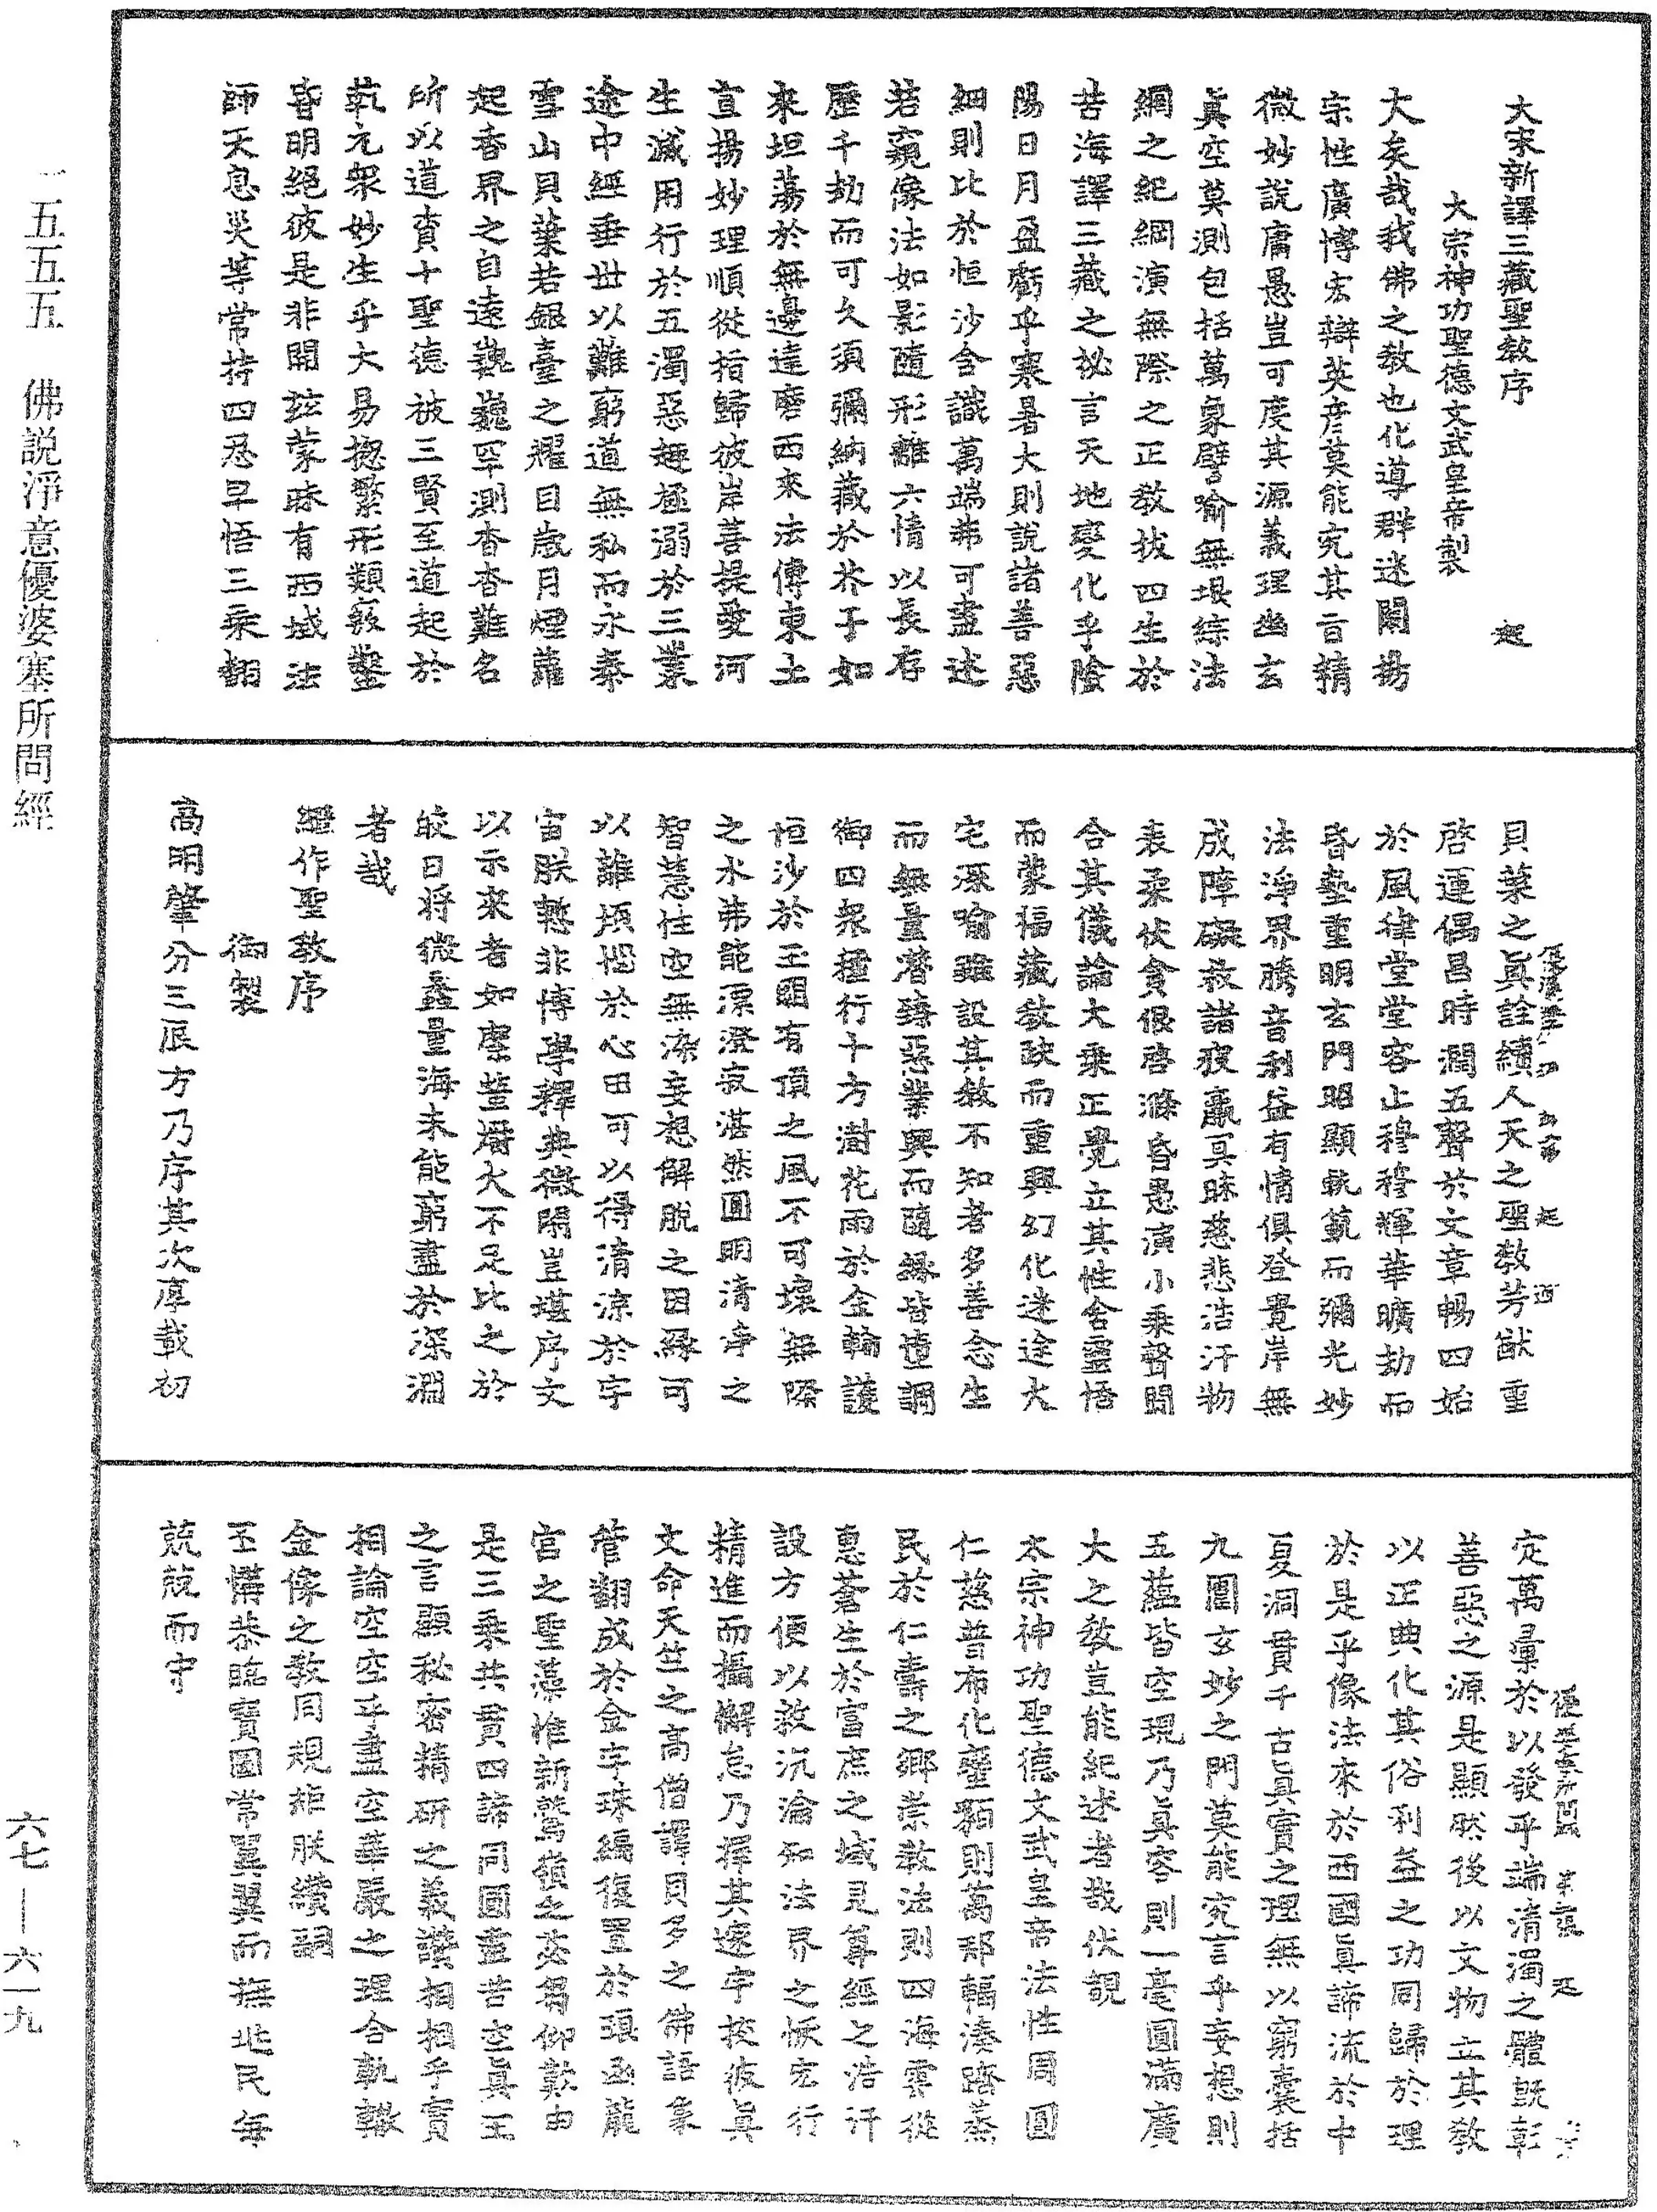 大宋新譯三藏聖教序　起
大宗神功聖德文武皇帝製
大矣哉我佛之教也化導群迷闡揚
宗性廣博宏辯英彥莫能究其旨精
微妙說庸愚豈可度其源義理幽玄
眞空莫測包括萬象譬喻無垠綜法
綱之紀綱演無際之正教拔四生於
苦海譯三藏之祕言天地變化乎陰
陽日月盈虧乎寒暑大則說諸善惡
細則比於恒沙含識萬端弗可盡述
若窺像法如影隨形離六情以長存
歷千劫而可久須彌納藏於芥子如
來坦蕩於無邊達磨西來法傳東土
宣揚妙理順從指歸彼岸菩提愛河
生滅用行於五濁惡趣極溺於三業
途中經垂世以難窮道無私而永泰
雪山貝葉若銀臺之耀目歲月煙蘿
起香界之自遠巍巍罕測杳杳難名
所以道賚十聖德被三賢至道起於
乾元衆妙生乎大易捴繁形類竅鑿
昏明絕彼是非開茲蒙昧有西域法
師天息災等常持四忍早悟三乘翻
貝葉之眞詮續人天之聖教芳猷重
啓運偶昌時潤五聲於文章暢四始
於風律堂堂容止穆穆輝華曠劫而
昏墊重明玄門昭顯軌範而彌光妙
法淨界騰音利益有情俱登覺岸無
成障礙救諸疲羸冥昧慈悲浩汗物
表柔伏貪佷啓滌昏愚演小乘聲聞
合其儀論大乘正覺立其性含靈悟
而蒙福藏教缺而重興幻化迷途大
宅深喻雖設其教不知者多善念生
而無量潛臻惡業興而隨緣皆墮調
御四衆積行十方澍花雨於金輪護
恒沙於玉闕有頂之風不可壞無際
之水弗能漂澄寂湛然圓明清淨之
智慧性空無染妄想解脫之因緣可
以離煩惱於心田可以得清涼於宇
宙朕慙非博學釋典微閑豈堪序文
以示來者如縻螢爝火不足比之於
皎日將微蠡量海未能窮盡於深淵
者哉
繼作聖教序
御製
高明肇分三辰方乃序其次厚載初
定萬彙於以發乎端清濁之體旣彰
善惡之源是顯然後以文物立其教
以正典化其俗利益之功同歸於理
於是乎像法來於西國眞諦流於中
夏洞貫千古眞實之理無以窮囊括
九圍玄妙之門莫能究言乎妄想則
五蘊皆空現乃眞容則一毫圓滿廣
大之教豈能紀述者哉伏覩
太宗神功聖德文武皇帝法性周圓
仁慈普布化臺黎則萬邦輻湊躋蒸
民於仁壽之鄉崇教法則四海雲從
惠蒼生於富庶之域見尊經之浩汗
設方便以救沉淪知法界之恢宏行
精進而攝懈怠乃擇其邃宇校彼眞
文命天竺之高僧譯貝多之佛語象
管翻成於金字珠編復置於琅函龍
宮之聖藻惟新鷲嶺之苾蒭仰歎由
是三乘共貫四諦同圓盡苦空眞正
之言顯秘密精研之義讚相相乎實
相論空空乎盡空華嚴之理合軌轍
金像之教同規矩朕纘嗣
丕構恭臨寶圖常翼翼而撫兆民每
兢兢而守
一五五五　佛説淨意優婆塞所問經
六七—六一九